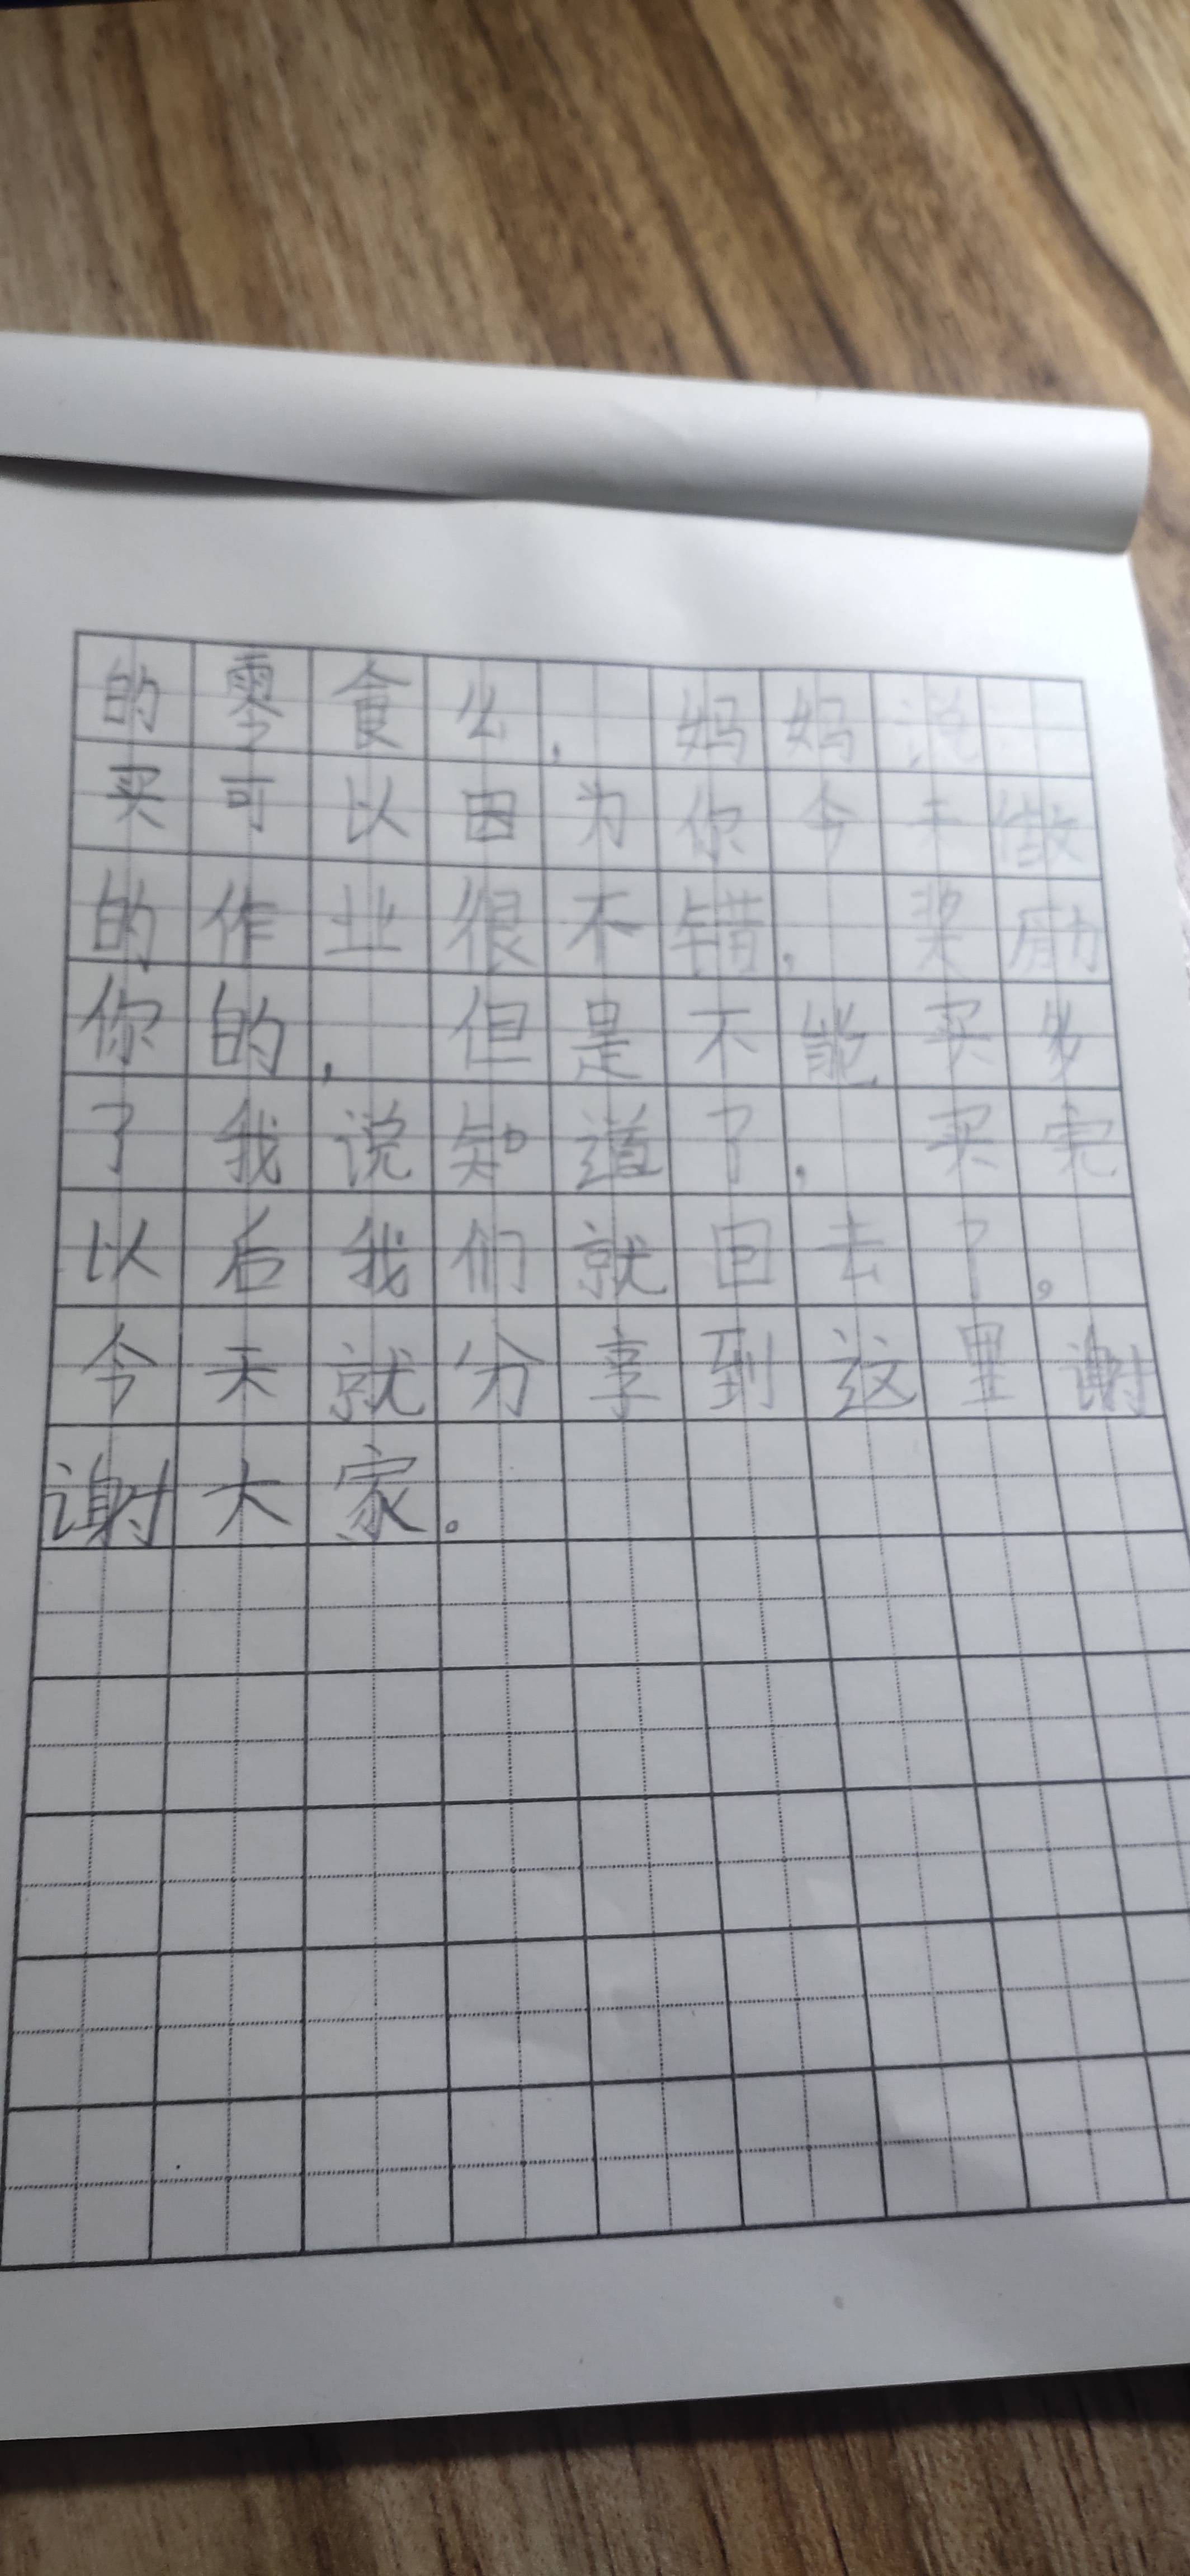 的零食么，妈妈说
买可以因为你今天做
的作业很不错，奖励
你的，但是不能买多
了我说知道了，买完
以后我们就回去了。
今天就分享到这里谢
谢大家。